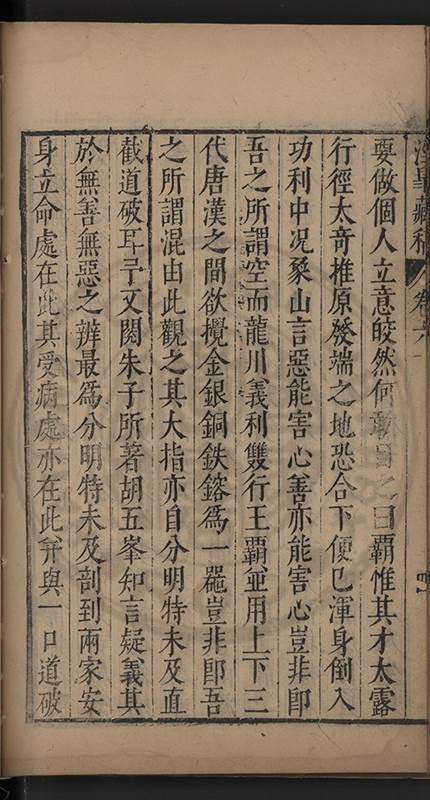 藏稿 卷六
要做個人立意皎然何敢目之曰霸惟其才太露
行徑太奇推原發端之地恐合下便已渾身倒入
功利中况象山言惡能害心善亦能害心豈非卽
吾之所謂空而龍川義利雙行王霸並用上下三
代唐漢之間欲攪金銀銅鉄鎔爲一器豈非卽吾
之所謂混由此觀之其大指亦自分明特未及直
截道破耳予又閱朱子所著胡五峯知言疑義其
於無善無惡之辨最爲分明特未及剖到兩家安
身立命處在此其受病處亦在此并與一口道破